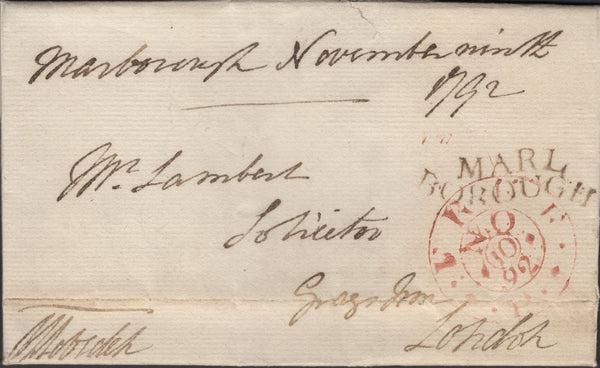 Marborough November ninth
1792
Mr. Lambert
Solicitor
Grays Inn
London
MARL
BOROUGH
FREE
NO
10
92